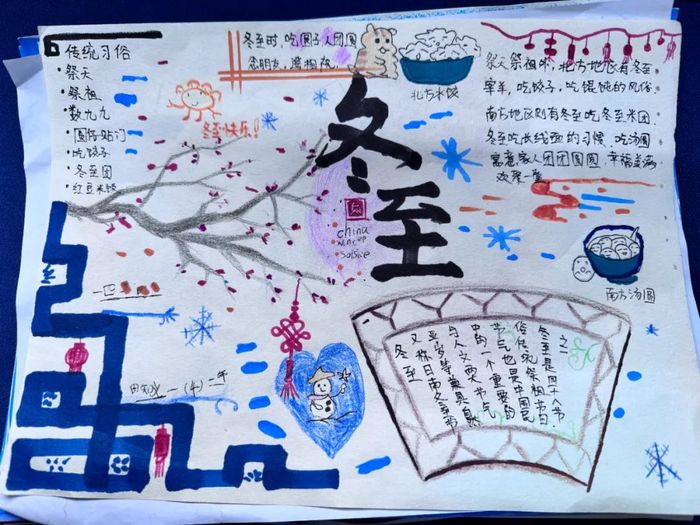 传统习俗
·祭天
·祭祖
·数九九
·圆仔贴门
·吃饺子
·冬至团
·红豆米饭
冬至时,吃圆子人团圆
念朋友,
冬至快乐!
北方水饺
祭天祭祖外,北方地区有冬至
宰羊,吃饺子,吃馄饨的风俗,
南方地区则有冬至吃冬至米团,
冬至吃长线面的习惯,吃汤圆
寓意家人团团圆圆,幸福美满
欢聚一堂
冬至
China
南方汤圆
冬至是四十八节
之二
俗传统祭祖节日.
节气也是中国民
中的一个重要的
与人文两大节气
亚岁等兼具自然
又称日南冬季节
冬至
一(4)